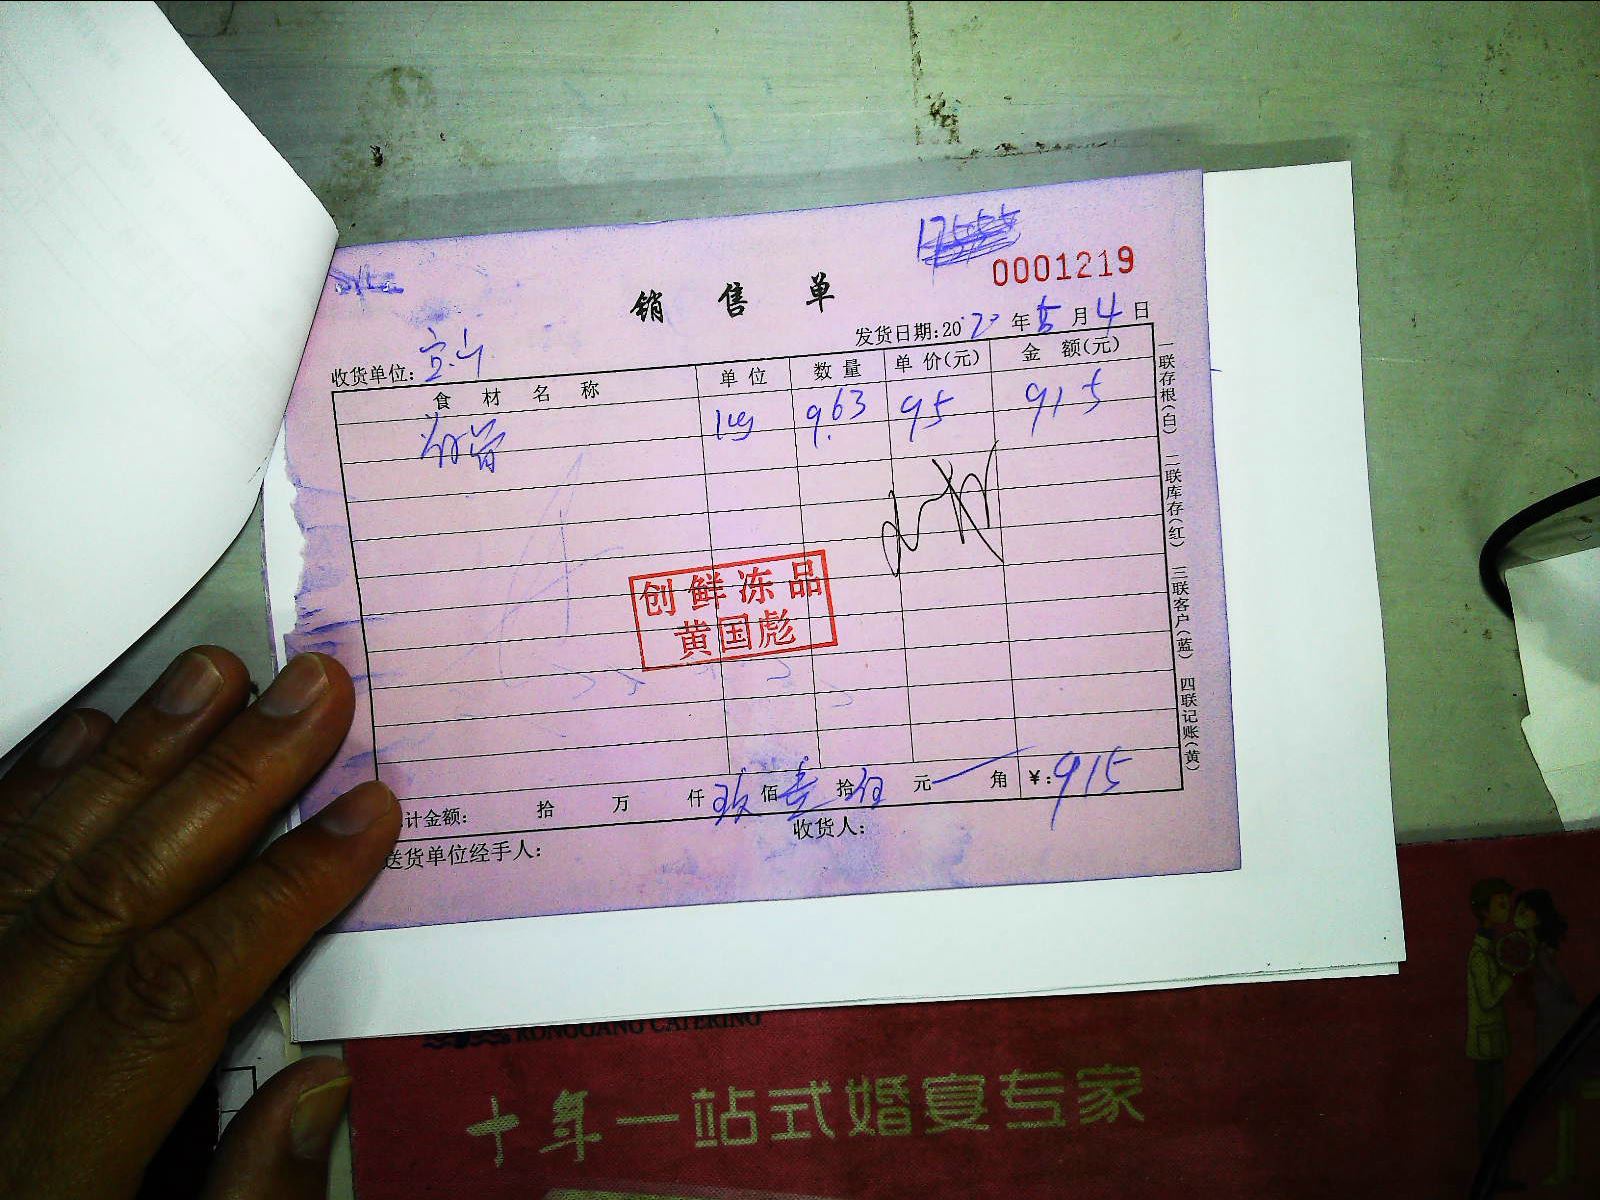 0001219
销售单
发货日期:2020年5月4日
收货单位:宝山
食材名称 单位 数量 单价(元) 金额(元)
kg 9.63 95 915
创鲜冻品
黄国彪
计金额: 拾 万 仟 玖佰壹拾伍元 角 ¥:915
送货单位经手人: 收货人:
一联存根(白) 二联库存(红) 三联客户(蓝) 四联记账(黄)
RONGGANG CATERING
十年一站式婚宴专家